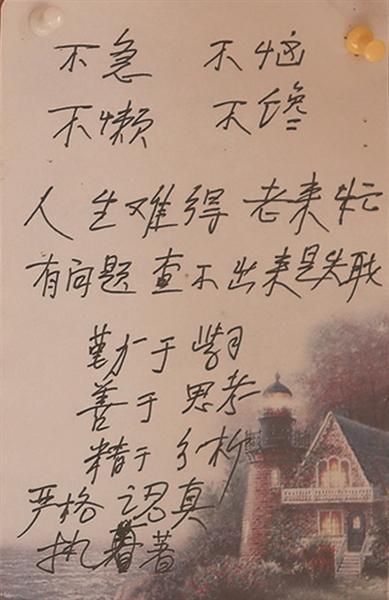 不急 不恼
不懒 不馋
人生难得 老来忙
有问题 查不出来是失职
勤于
善于 思考
精于 分析
严格 認真
执着著